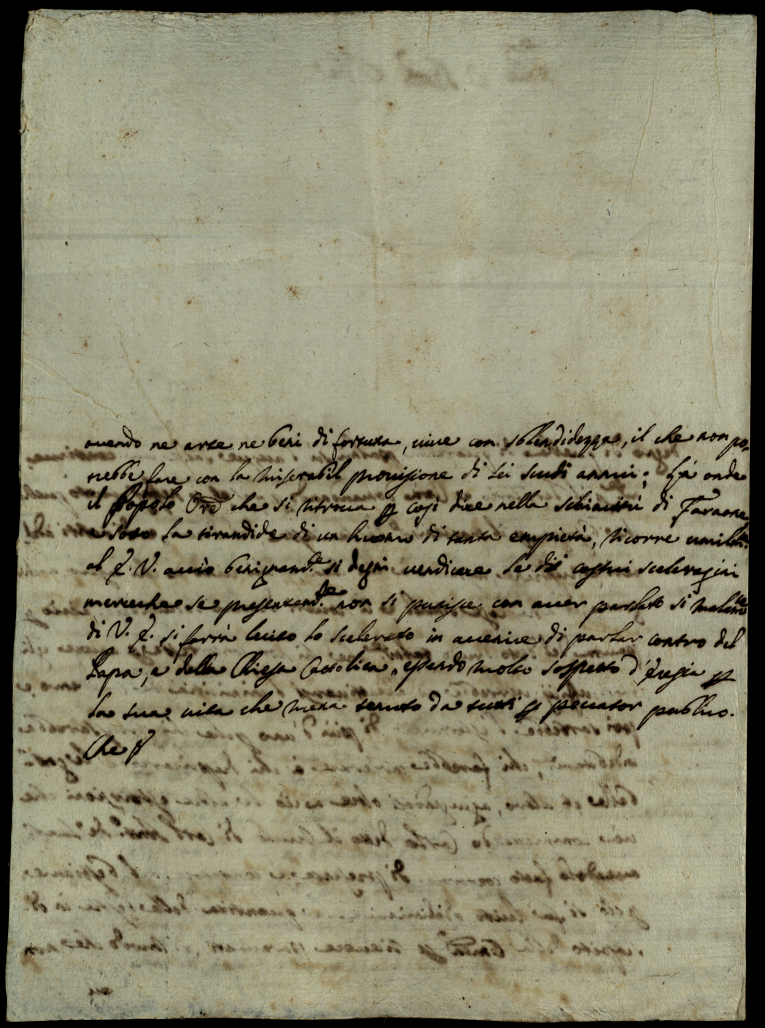 auendo ne arte ne beni di fortuna, uiue con splendidezza, il che non po-
trebbe fare con la miserabil prouisione di sei scudi annui; La onde
il Popolo che si ritroua per così dire nella schiauitù di Faraone
e sotto la tirannide di un huomo di tanta empietà, ricorre umilte
al E. V. acciò benignamte si degni uerdicare se di costui sceleragini
mercechè se presentemte non si punisse con auer parlato sì malamte
di V. E. si farà lecito lo scelerato in auenire di parlar contro del
Papa, e della Chiesa Cattolica, essendo molto sospetto d'Eresia per
la sua uita che mena tenuto da tutti per peccator publico.
Che